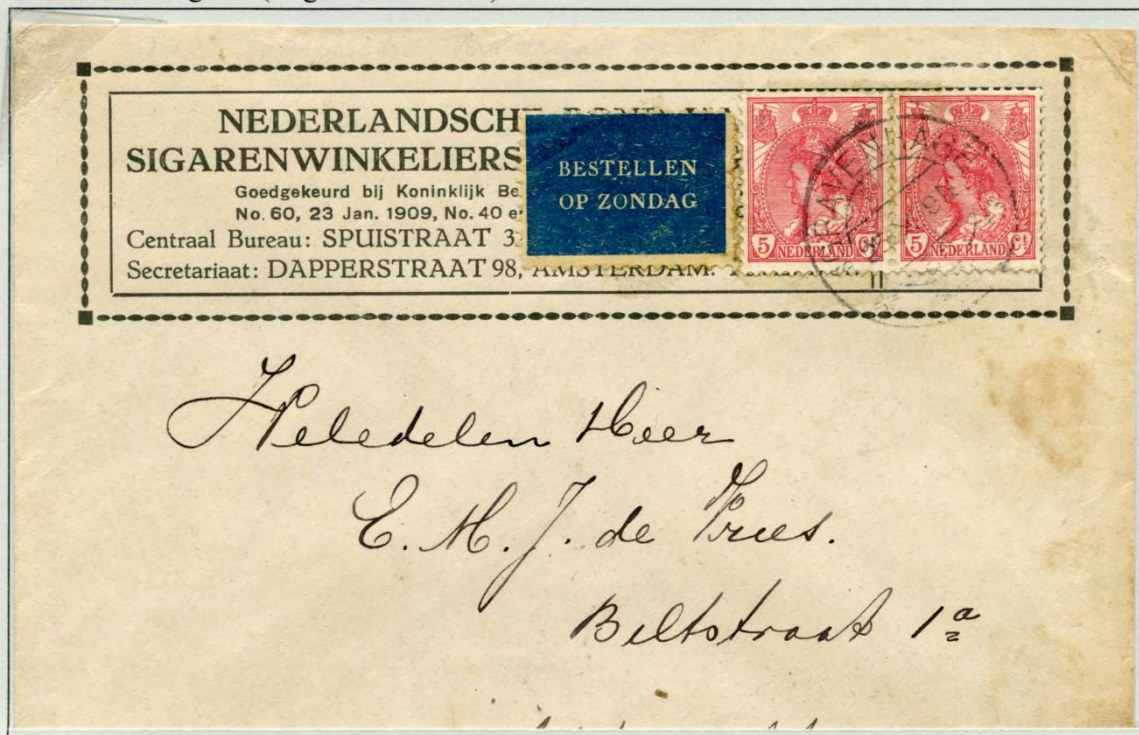 NEDERLANDSCHE BOND VAN
SIGARENWINKELIERS
Goedgekeurd bij Koninklijk Be
No. 60, 23 Jan. 1909, No. 40 e
Centraal Bureau: SPUISTRAAT 3
Secretariaat: DAPPERSTRAAT 98, AMSTERDAM.
BESTELLEN
OP ZONDAG
5 NEDERLAND Ct
5 NEDERLAND Ct
GRAVENHAGE
Weledelen Heer
E. M. J. de Vries.
Biltstraat 1a